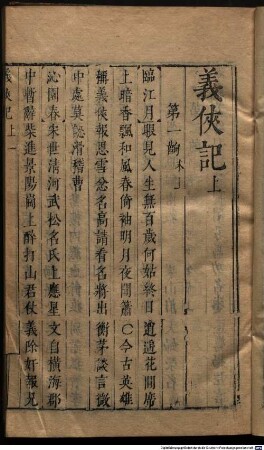 義俠記上
第一齣 末上
臨江月眼見人生無百歲何妨終日逍遙花間席
上暗香飄和風春侑袖明月夜聞簫〇今古英雄
義俠報恩雪忿名高請看名將出衡茅談言微
中處莫認滑稽曹
沁園春宋世清河武松名氏上應星文自橫海郡
中暫辭柴進景陽崗上醉打山君仗義除奸報兄
義俠記 上 一